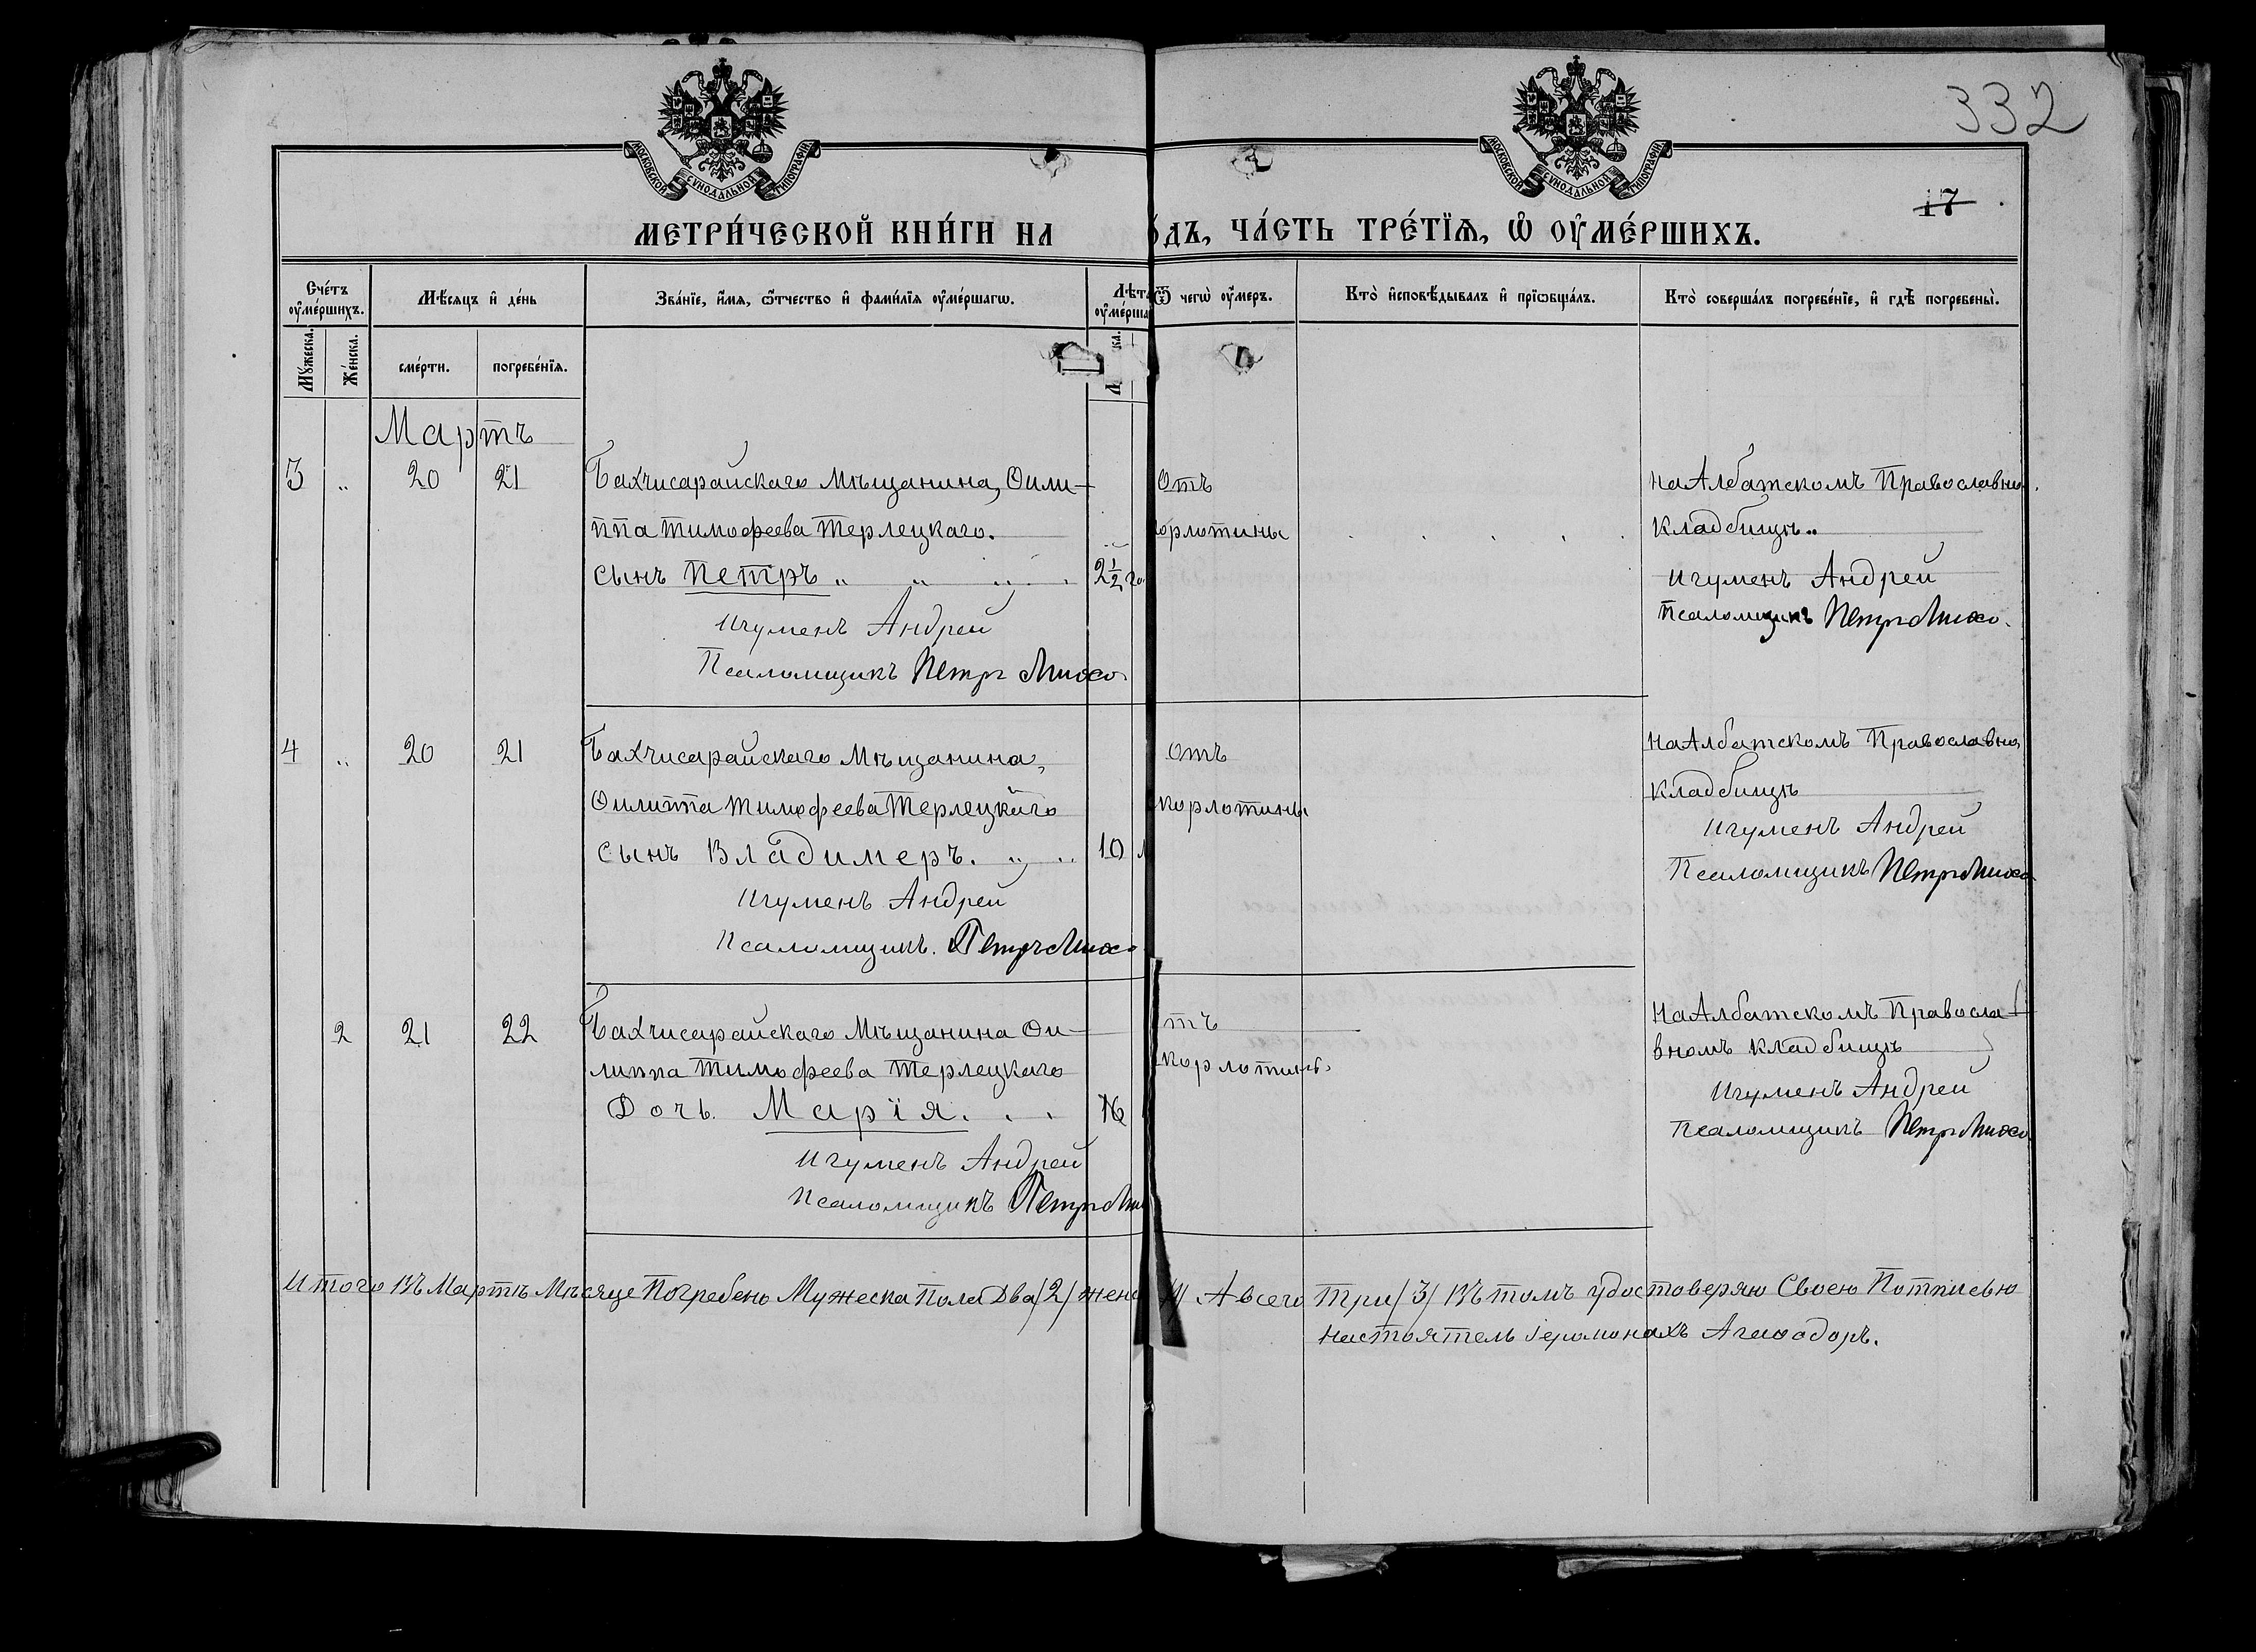 332
17
МОСКОВСКОЙ СѴНОДАЛЬНОЙ ТИПОГРАФІИ
МОСКОВСКОЙ СѴНОДАЛЬНОЙ ТИПОГРАФІИ
МЕТРИ́ЧЕСКОЙ КНИ́ГИ НА
ѻ́дъ, ЧА́СТЬ ТРЕ́ТЇѦ, Ѡ҆ ОУ҆МЕ́РШИХЪ.
Сче́тъ оу҆ме́ршихъ.
Мѣ́сяцъ и҆ де́нь
Зва́нїе, и҆́мя, ѻ҆́тчество и҆ фами́лїя оу҆ме́ршагѡ.
Лѣт
оу҆ме́рша
Ѿ чегѡ̀ оу҆́меръ.
Кто̀ и҆сповѣ́дывалъ и҆ прїѡбща́лъ.
Кто̀ соверша́лъ погребе́нїе, и҆ гдѣ̀ погребены̀.
Мꙋ́жеска.
Же́нска.
сме́рти.
погребе́нїя.
Мартъ
3 „ 20 21 Бахчисарайскаго Мѣщанина, Ѳили-
ппа Тимофеева Терлецкаго.
сынъ Петръ „ „ „ 2 1/2 го
Игуменъ Андрей
Псаломщикъ Петръ
Отъ
орлотины
на Албатскомъ Православно.
Кладбищѣ„
Игуменъ Андрей
Псаломщикъ Петръ
4 „ 20 21 Бахчисарайскаго Мѣщанина,
Ѳилиппа Тимофеева Терлецкаго
сынъ Владимеръ. „ „ 10 л
Игуменъ Андрей
Псаломщикъ. Петръ
Отъ
скорлотины
на Албатскомъ Православно
Кладбищѣ
Игуменъ Андрей
Псаломщикъ Петръ
2 21 22 Бахчисарайскаго Мѣщанина Ѳи-
липпа Тимофеева Терлецкаго
Дочь. Марія. . . 16
Игуменъ Андрей
Псаломщикъ Петръ
тъ
скорлотины.
На Албатскомъ Правосла-
вномъ Кладбищѣ
Игуменъ Андрей
Псаломщикъ Петръ
Итого Въ Мартѣ Мѣсяце Погребено Мужеска Пола Два /2/ женс /1/ А всего Три /3/ Въ томъ удостоверяю Своею Потписью
Настоятель Іеромонахъ Агаѳодоръ.